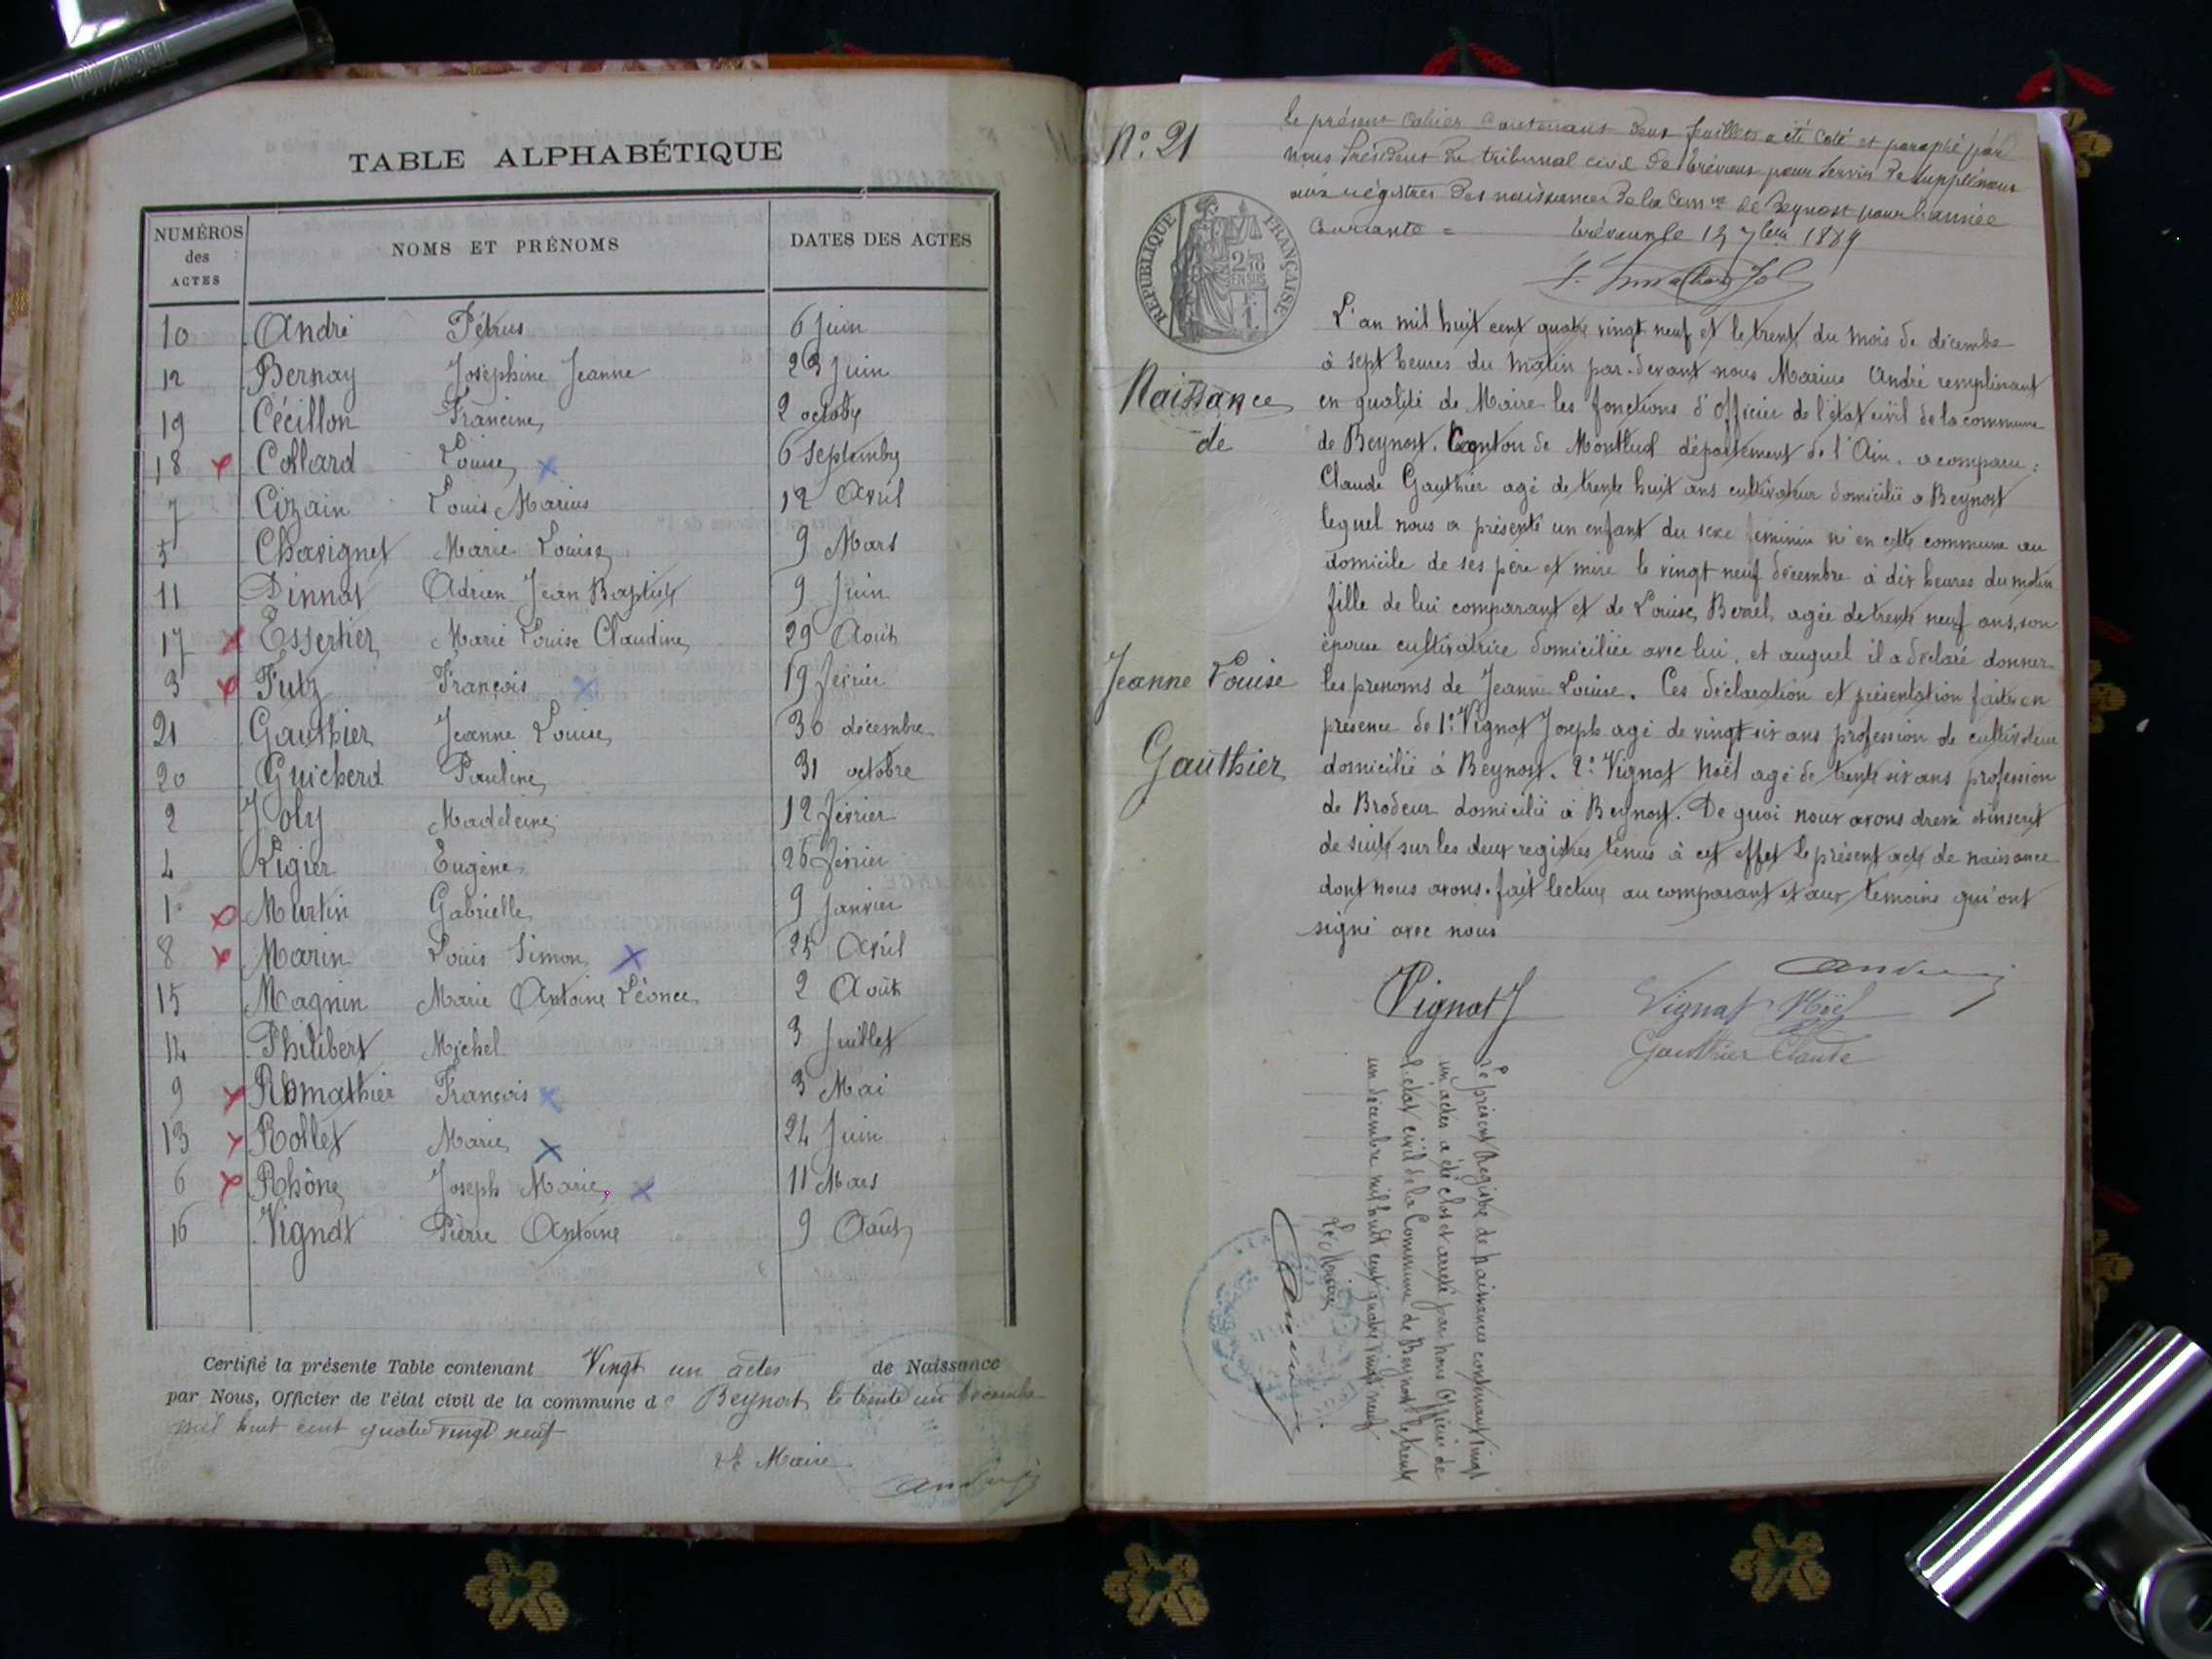 TABLE ALPHABÉTIQUE
NUMÉROS des ACTES NOMS ET PRÉNOMS DATES DES ACTES
10 André Pétrus 6 Juin
12 Bernay Joséphine Jeanne 23 Juin
19 Cécillon Francine 2 octobre
18 Collard Louise 6 Septembre
7 Cizain Louis Marius 12 Avril
5 Chavignet Marie Louise 9 Mars
11 Dinnat Adrien Jean Baptiste 9 Juin
17 Essertier Marie Louise Claudine 29 Août
3 Futz François 19 février
21 Gauthier Jeanne Louise 30 décembre
20 Guicherd Pauline 31 octobre
2 Joly Madeleine 12 février
4 Ligier Eugène 26 février
1 Murtin Gabrielle 9 Janvier
8 Marin Louis Simon 25 Avril
15 Magnin Marie Antoine Léonce 2 Août
14 Philibert Michel 3 Juillet
9 Romathier François 3 Mai
13 Rollet Marie 24 Juin
6 Rhône Joseph Marie 11 Mars
16 Vignat Pierre Antoine 9 Août
Certifié la présente Table contenant Vingt un actes de Naissance
par Nous, Officier de l'état civil de la commune de Beynost le trente un décembre
mil huit cent quatre vingt neuf
Le Maire
André
N° 21
le présent cahier contenant deux feuillets a été coté et paraphé par
nous Président du tribunal civil de Trévoux pour servir de supplément
aux régistres des naissances de la Comne de Beynost pour l'année
Courante = Trévoux le 12 7bre 1889
REPUBLIQUE FRANÇAISE
2/10 EN SUS
1F
Naissance
de
Jeanne Louise
Gauthier
L'an mil huit cent quatre vingt neuf et le trente du mois de décembre
à sept heures du matin par-devant nous Marius André remplissant
en qualité de Maire les fonctions d'Officier de l'état civil de la commune
de Beynost. Canton de Montluel département de l'Ain. a comparu :
Claude Gauthier agé de trente huit ans cultivateur domicilié a Beynost
lequel nous a présenté un enfant du sexe feminin né en cette commune au
domicile de ses père et mère le vingt neuf décembre à dix heures du matin
fille de lui comparant et de Louise Berrel agée de trente neuf ans, son
épouse cultivatrice domiciliée avec lui, et auquel il a déclaré donner
les prenoms de Jeanne Louise. Ces déclaration et présentation faites en
présence de 1° Vignat Joseph agé de vingt six ans profession de cultivateur
domicilié à Beynost. 2° Vignat Noël agé de trente six ans profession
de Brodeur domicilié à Beynost. De quoi nous avons dressé et inscrit
de suite sur les deux registres tenus à cet effet le présent acte de naissance
dont nous avons fait lecture au comparant et aux témoins qui ont
signé avec nous
André
Vignat J Vignat Noël
Gauthier Claude
Le présent Registre de naissances contenant vingt
un actes a été clos et arrêté par nous Officier de
l'état civil de la Commune de Beynost le trente
un décembre mil huit cent quatre vingt neuf
Le Maire
André